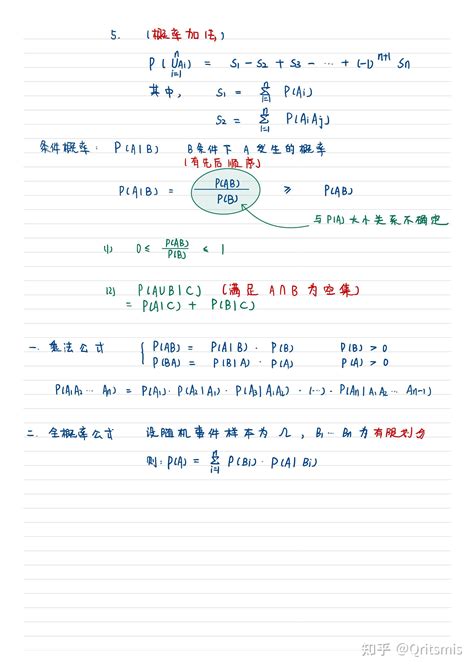 5. (概率加法)
P(⋃ⁿᵢ₌₁Ai) = S1 - S2 + S3 - ··· + (-1)ⁿ⁺¹ Sn
其中, S1 = Σⁿᵢ₌₁ P(Ai)
S2 = Σⁿᵢ₌₁ P(AiAj)
条件概率: P(A|B) B条件下 A 发生的概率
(有先后顺序)
P(A|B) = P(AB)/P(B) ≥ P(AB)
与P(A)大小关系不确定
(1) 0 ≤ P(AB)/P(B) ≤ 1
(2) P(AUB|C) (满足 A∩B 为空集)
= P(A|C) + P(B|C)
一. 乘法公式 { P(AB) = P(A|B) · P(B) P(B) > 0
P(BA) = P(B|A) · P(A) P(A) > 0
P(A1A2 ··· An) = P(A1) · P(A2|A1) · P(A3|A1A2) · (···) · P(An|A1A2 ··· An-1)
二. 全概率公式 设随机事件样本为 Ω, B1 ··· Bn 为有限划分
则: P(A) = Σⁿᵢ₌₁ P(Bi) · P(A|Bi)
知乎 @Qritsmis